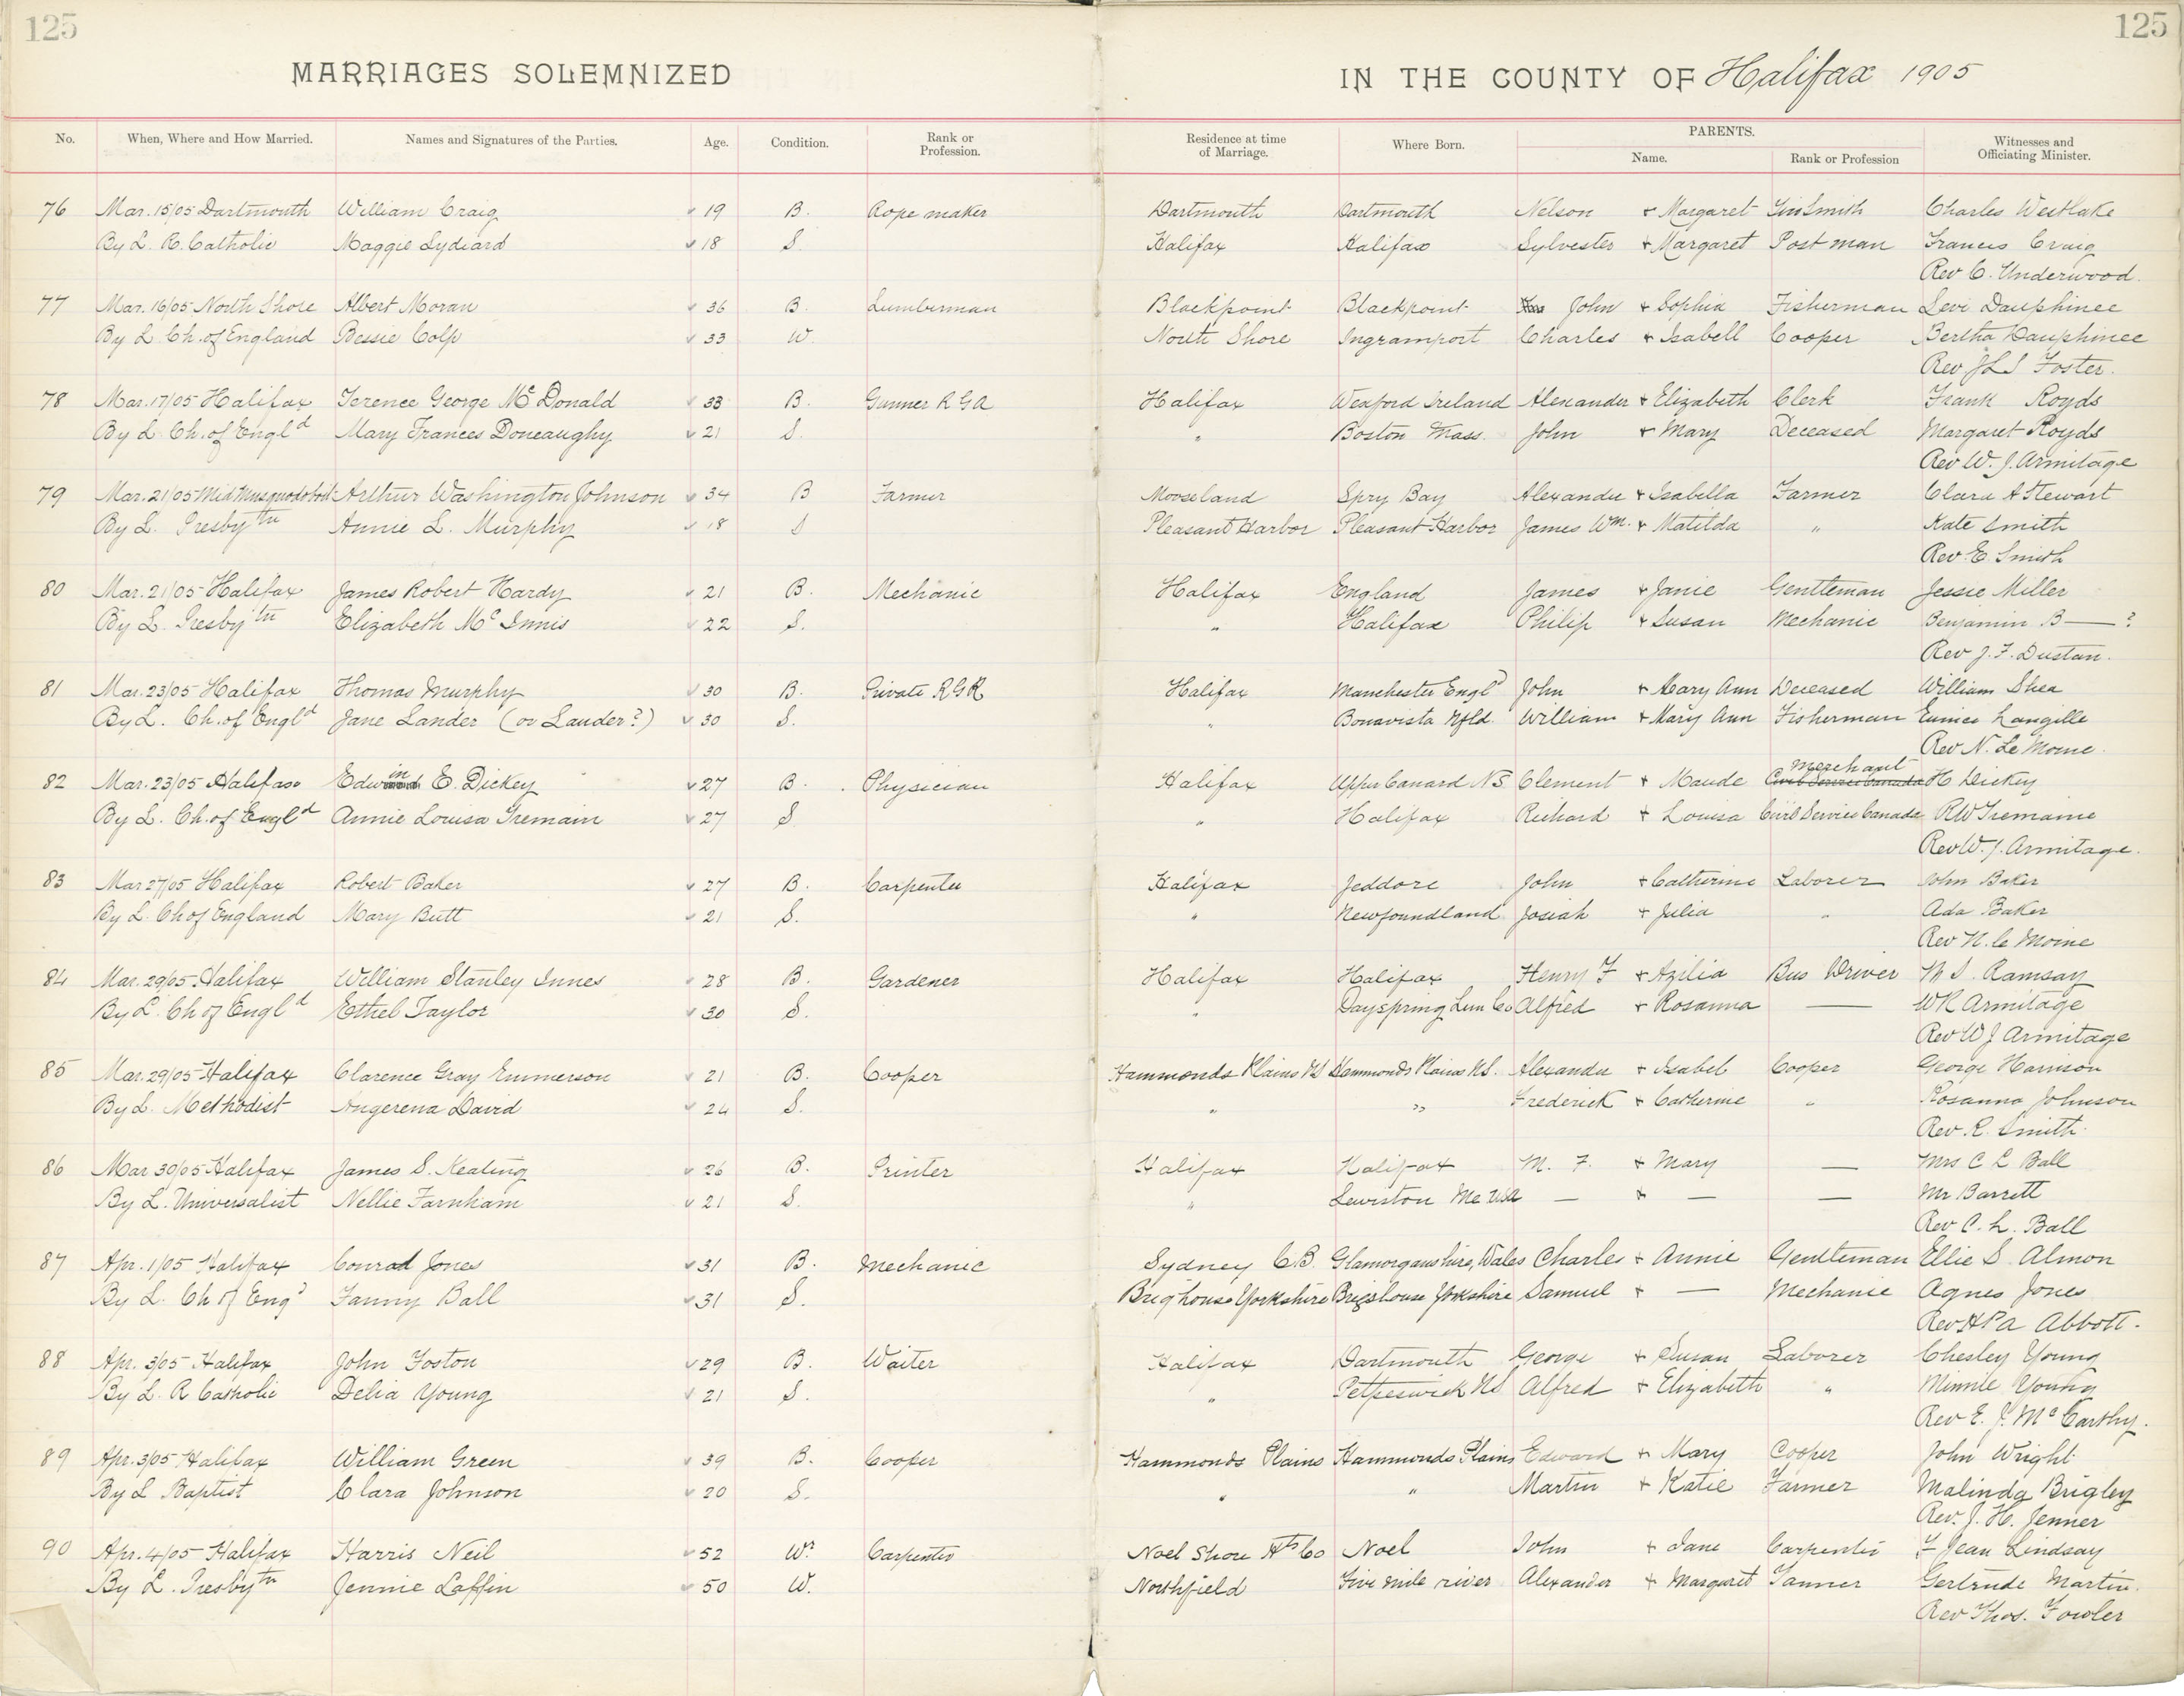 125
125
MARRIAGES SOLEMNIZED
IN THE COUNTY OF Halifax 1905
No. When, Where and How Married. Names and Signatures of the Parties. Age. Condition. Rank or Profession. Residence at time of Marriage. Where Born. PARENTS. Name. Rank or Profession Witnesses and Officiating Minister.
76 Mar. 15/05 Dartmouth William Craig 19 B. Rope maker Dartmouth Dartmouth Nelson + Margaret Tinsmith Charles Westlake
By L. R. Catholic Maggie Lydiard 18 S. Halifax Halifax Sylvester + Margaret Postman Francis Craig
Rev C. Underwood.
77 Mar. 16/05 North Shore Albert Moran 36 B. Lumberman Blackpoint Blackpoint John + Sophia Fisherman Levi Dauphinee
By L. Ch. of England Bessie Colp 33 W. North Shore Ingramport Charles + Isabell Cooper Bertha Dauphinee
Rev J L S Foster.
78 Mar. 17/05 Halifax Terence George Mc Donald 33 B. Gunner R G A Halifax Wexford Ireland Alexander + Elizabeth Clerk Frank Royds
By L Ch. of Engld Mary Frances Doneaughy 21 S. " Boston Mass. John + Mary Deceased Margaret Royds
Rev W. J. Armitage
79 Mar. 21/05 Mid Musquodoboit Arthur Washington Johnson 34 B Farmer Mooseland Spry Bay Alexander + Isabella Farmer Clara A Stewart
By L. Presbytn Annie L. Murphy 18 S Pleasant Harbor Pleasant Harbor James Wm. + Matilda " Kate Smith
Rev E. Smith
80 Mar. 21/05 Halifax James Robert Hardy 21 B. Mechanic Halifax England James + Janie Gentleman Jessie Miller
By L. Presbytn Elizabeth Mc Innis 22 S. " Halifax Philip + Susan Mechanic Benjamin B—— ?
Rev J. F. Dustan.
81 Mar. 23/05 Halifax Thomas Murphy 30 B. Private RGR Halifax Manchester Engld John + Mary Ann Deceased William Shea
By L. Ch. of Engld Jane Lander (or Lauder?) 30 S. " Bonavista Nfld. William + Mary Ann Fisherman Eunice Langille
Rev N. Le Moine.
82 Mar. 23/05 Halifax Edwin E. Dickey 27 B. Physician Halifax Upper Canard NS Clement + Maude Merchant Civil Service Canada H Dickey
By L. Ch. of Engld Annie Louisa Tremain 27 S " Halifax Richard + Louisa Civil Service Canada RW Tremaine
Rev W. J. Armitage.
83 Mar 27/05 Halifax Robert Baker 27 B. Carpenter Halifax Jeddore John + Catherine Laborer John Baker
By L. Ch of England Mary Butt 21 S. " Newfoundland Josiah + Julia " Ada Baker
Rev N. le Moine
84 Mar. 29/05 Halifax William Stanley Innes 28 B. Gardener Halifax Halifax Henry F + Azilia Bus Driver M S. Ramsay
By L. Ch of Engld Ethel Taylor 30 S. " Dayspring Lun Co Alfred + Rosanna — WR Armitage
Rev W J Armitage
85 Mar. 29/05 Halifax Clarence Gray Emmerson 21 B. Cooper Hammonds Plains NS Hammonds Plains NS. Alexander + Isabel Cooper George Harrison
By L. Methodist Angerena David 24 S. " " Frederick + Catherine " Rosanna Johnson
Rev. R. Smith.
86 Mar 30/05 Halifax James S. Keating 26 B. Printer Halifax Halifax M. F. + Mary — Mrs C L Ball
By L. Universalist Nellie Farnham 21 S. " Lewiston Me USA — + — — Mr Barrett
Rev C. L. Ball
87 Apr. 1/05 Halifax Conrad Jones 31 B. Mechanic Sydney C.B. Glamorganshire, Wales Charles + Annie Gentleman Ellie S Almon
By L. Ch of Engd Fanny Ball 31 S. Brighouse Yorkshire Brigshouse Yorkshire Samuel + — Mechanic Agnes Jones
Rev H P A Abbott.
88 Apr. 3/05 Halifax John Foston 29 B. Waiter Halifax Dartmouth George + Susan Laborer Chesley Young
By L. R Catholic Delia Young 21 S. " Petpeswick NS Alfred + Elizabeth " Minnie Young
Rev E. J. Mc Carthy.
89 Apr. 3/05 Halifax William Green 39 B. Cooper Hammonds Plains Hammonds Plains Edward + Mary Cooper John Wright
By L Baptist Clara Johnson 20 S. " " Martin + Katie Farmer Malinda Brigley
Rev. J. H. Jenner
90 Apr. 4/05 Halifax Harris Neil 52 Wr Carpenter Noel Shore Hts Co Noel John + Jane Carpenter F Jean Lindsay
By L. Presbytn Jennie Laffin 50 W. Northfield Five mile river Alexander + Margaret Farmer Gertrude Martin.
Rev Thos. Fowler